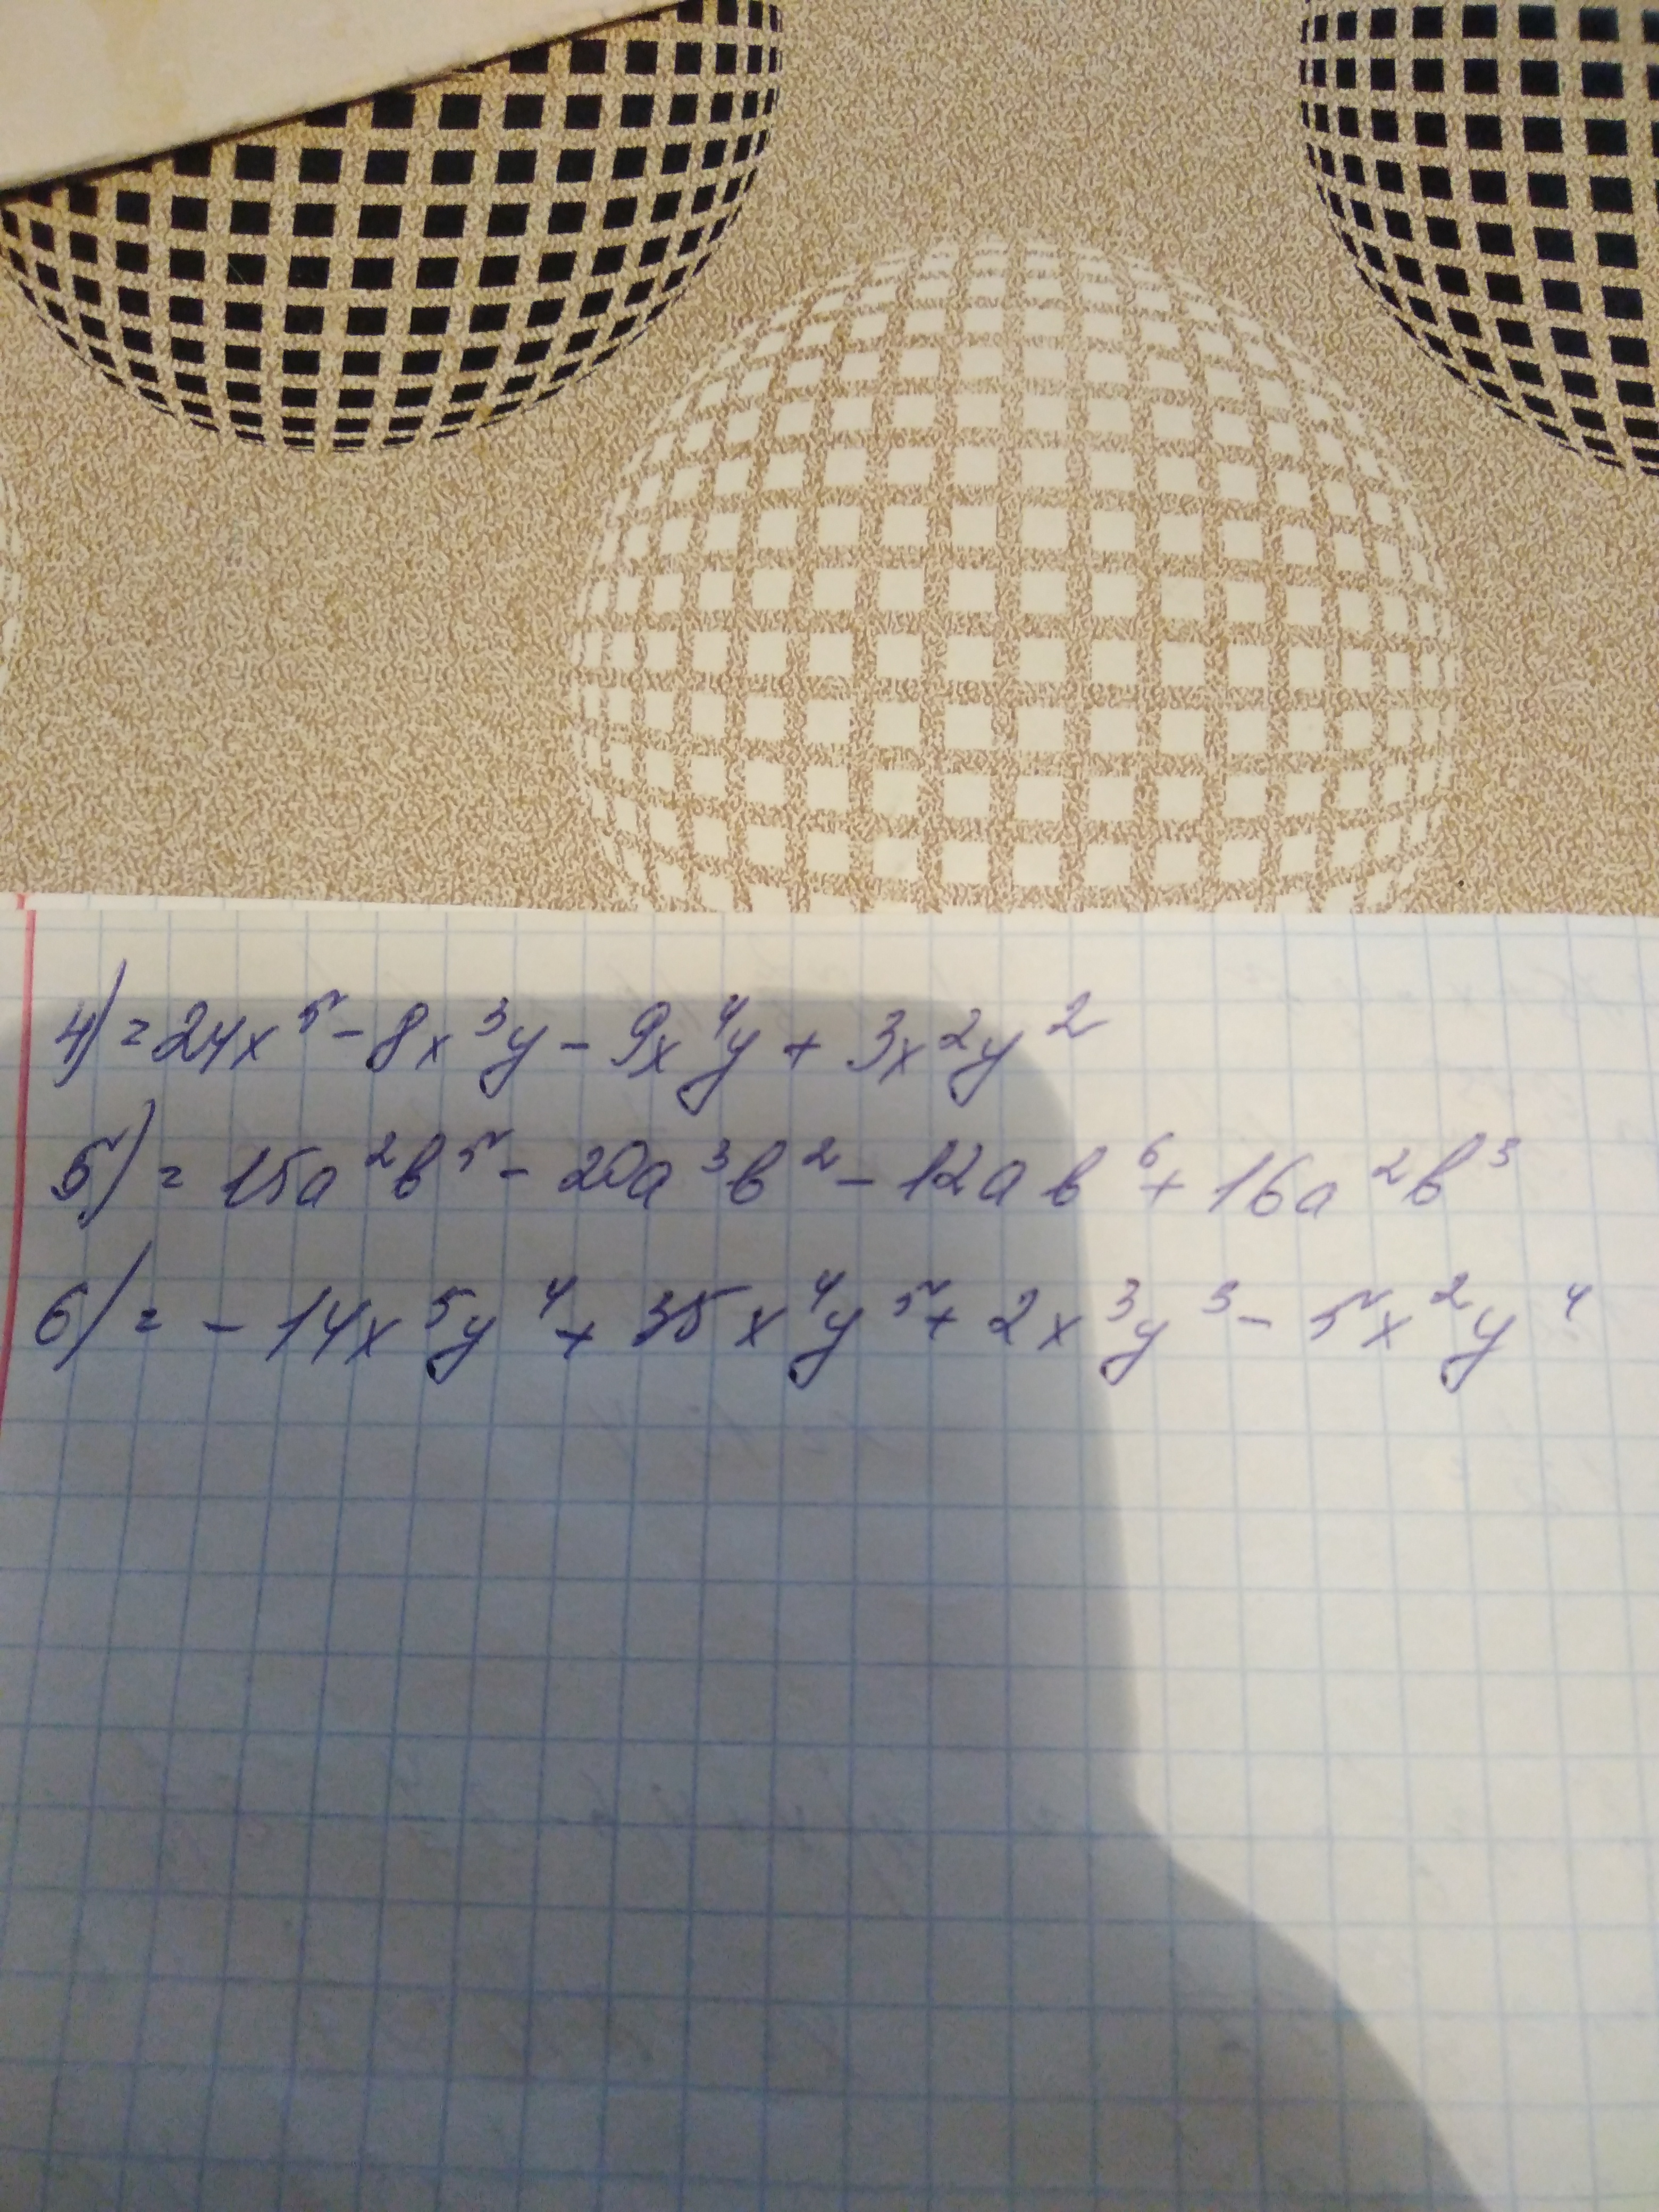 4) = 24x⁵ - 8x³y - 9x⁴y + 3x²y²
5) = 15a²b⁵ - 20a³b² - 12ab⁶ + 16a²b³
6) = - 14x⁵y⁴ + 35x⁴y⁵ + 2x³y³ - 5x²y⁴